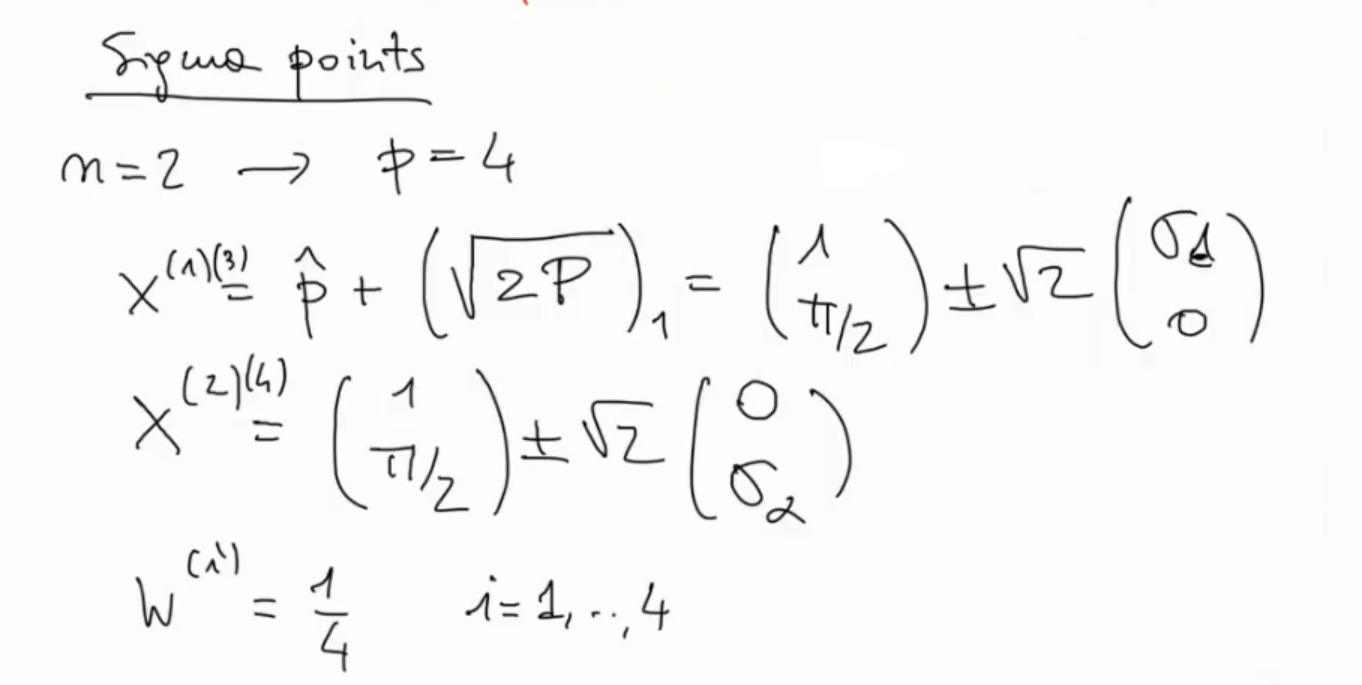 Sigma points
n=2 → p=4
X^{(1)(3)} = \hat{p} + (\sqrt{2P})_1 = \begin{pmatrix} 1 \\ π/2 \end{pmatrix} ± \sqrt{2} \begin{pmatrix} σ_d \\ 0 \end{pmatrix}
X^{(2)(4)} = \begin{pmatrix} 1 \\ π/2 \end{pmatrix} ± \sqrt{2} \begin{pmatrix} 0 \\ σ_α \end{pmatrix}
W^{(i)} = \frac{1}{4} i=1,..,4